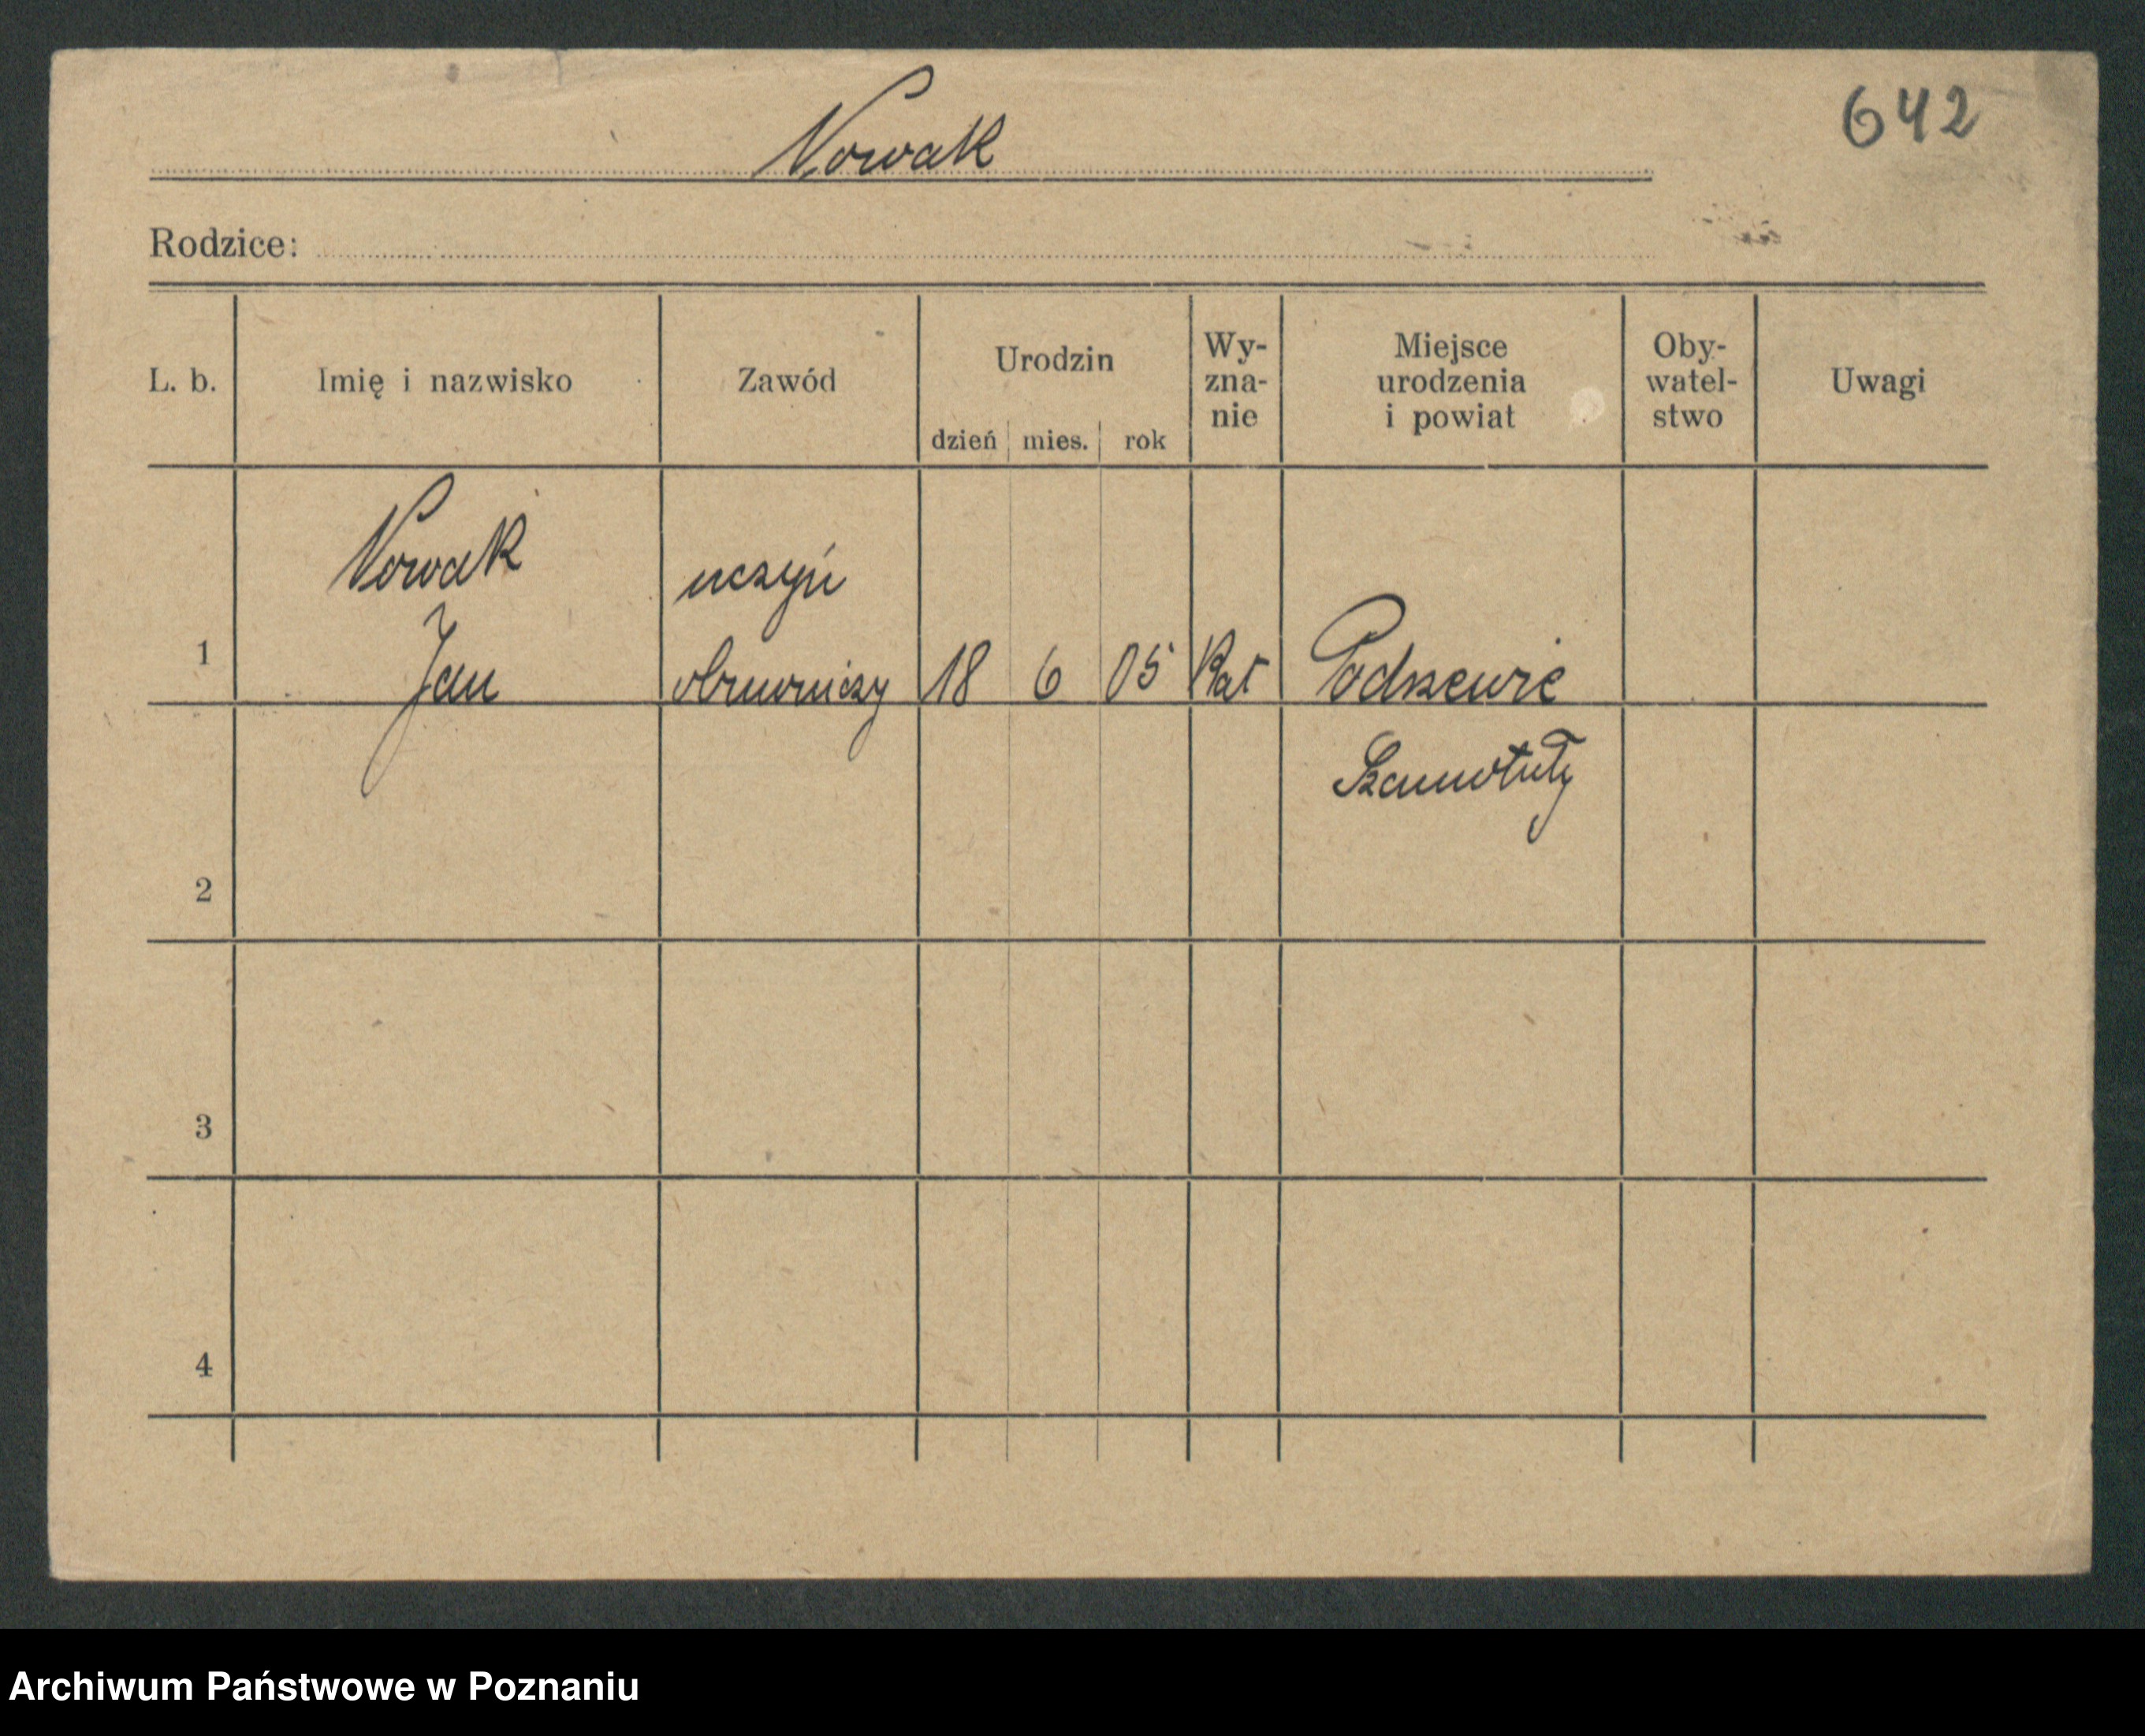 Nowak
642
Rodzice:
L. b.
Imię i nazwisko
Zawód
Urodzin
dzień mies. rok
Wy-
zna-
nie
Miejsce
urodzenia
i powiat
Oby-
watel-
stwo
Uwagi
Nowak uczyń
1 Jan 18 6 05 Kat
Szamotuły
2
3
4
Archiwum Państwowe w Poznaniu